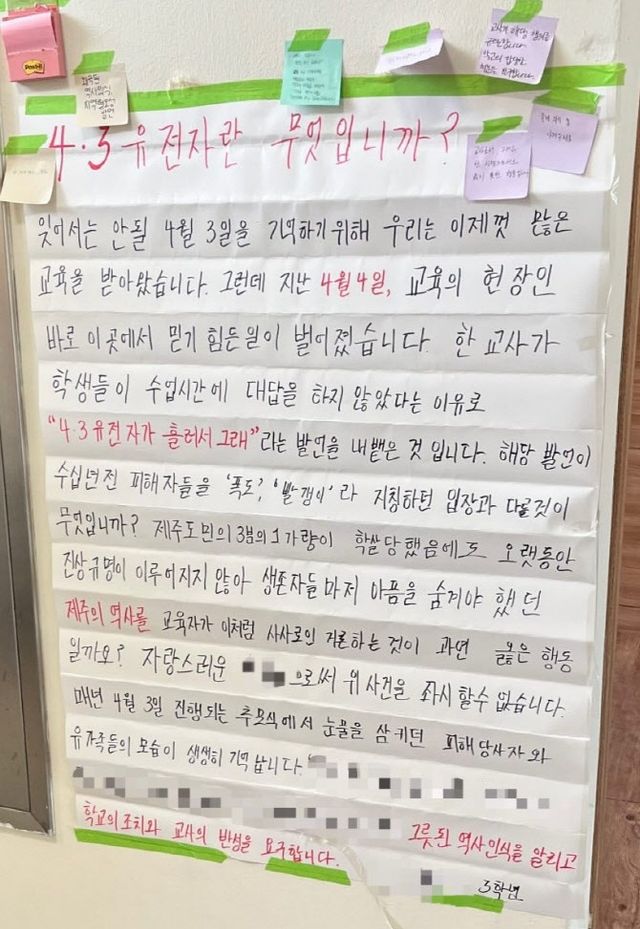 Post-it
4·3 유전자란 무엇입니까?
잊어서는 안될 4월 3일을 기억하기위해 우리는 이제껏 많은
교육을 받아왔습니다. 그런데 지난 4월4일, 교육의 현장인
바로 이곳에서 믿기 힘든일이 벌어졌습니다. 한 교사가
학생들이 수업시간에 대답을 하지 않았다는 이유로
"4·3유전자가 흘러서 그래"라는 발언을 내뱉은 것 입니다. 해당 발언이
수십년전 피해자들을 '폭도', '빨갱이'라 지칭하던 입장과 다를것이
무엇입니까? 제주도민의 3분의 1 가량이 학살당했음에도 오랫동안
진상규명이 이루어지지 않아 생존자들마저 아픔을 숨겨야 했던
제주의 역사를 교육자가 이처럼 사사로이 거론하는 것이 과연 옳은 행동
일까요? 자랑스러운 으로써 위 사건을 좌시 할수 없습니다.
매년 4월 3일 진행되는 추모식에서 눈물을 삼키던 피해당사자와
유가족들의 모습이 생생히 기억 납니다.
그릇된 역사인식을 알리고
학교의 조치와 교사의 반성을 요구합니다.
3학년